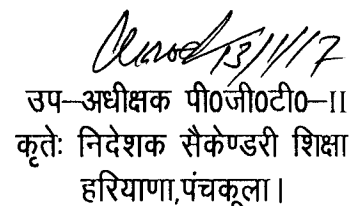 13/11/17
उप-अधीक्षक पी0जी0टी0-II
कृतेः निदेशक सैकेण्डरी शिक्षा
हरियाणा,पंचकूला।